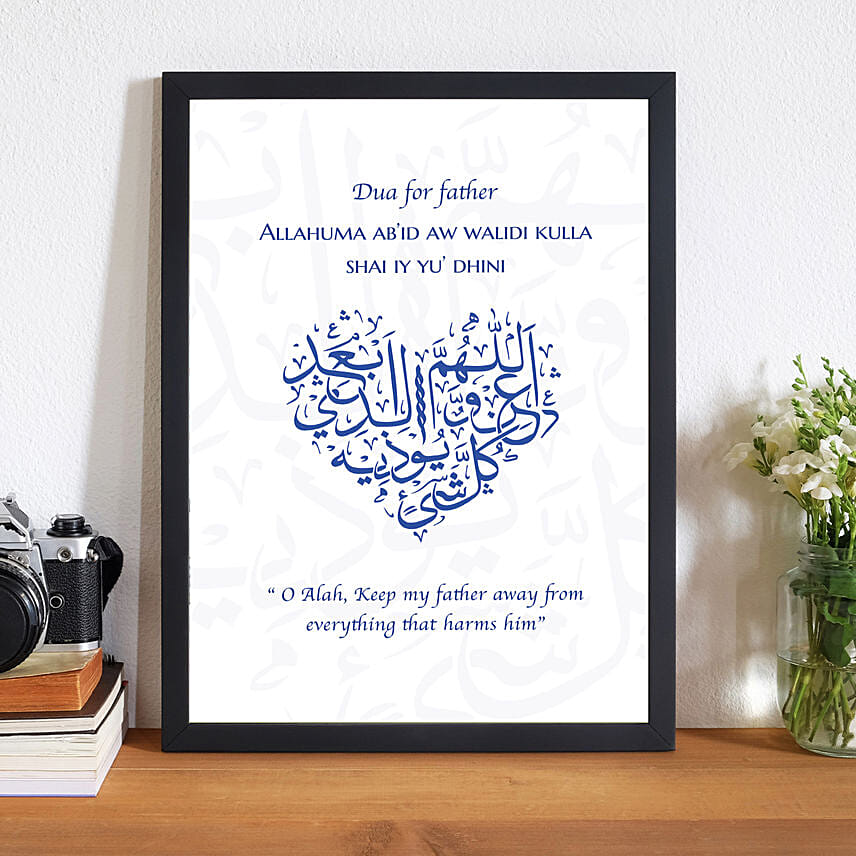 Dua for father
ALLAHUMA AB'ID AW WALIDI KULLA
SHAI IY YU' DHINI
اللَّهُمَّ ابعد
والدي
كُلَّ شَئ يُوذيه
“ O Alah, Keep my father away from
everything that harms him”